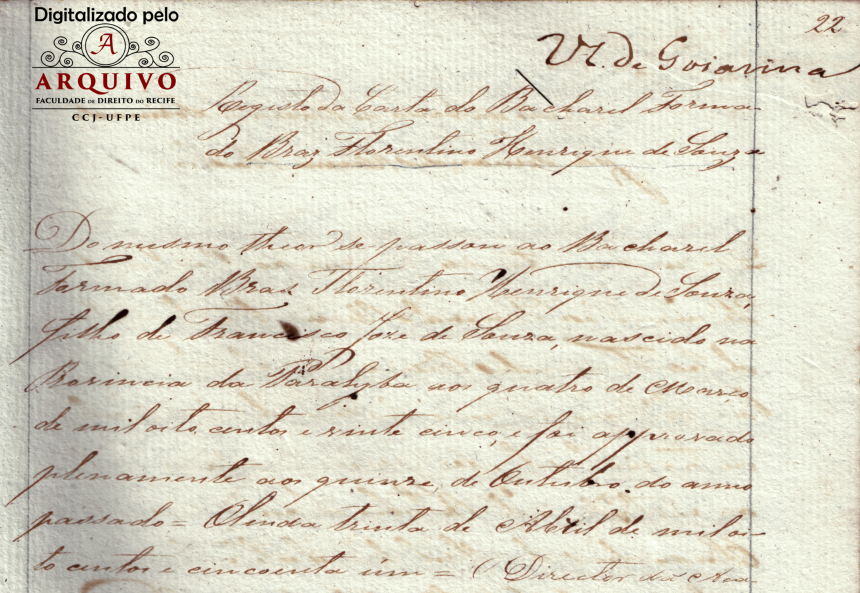 Digitalizado pelo
A
ARQUIVO
FACULDADE DE DIREITO DO RECIFE
CCJ-UFPE
22
V. de Goianna
Registo da Carta do Bacharel Forma-
do Braz Florentino Henrique de Souza
Do mesmo theor se passou ao Bacharel
Formado Bras Florentino Henrique de Souza,
filho de Francisco Joze de Souza, nascido na
Provincia da Parahyba aos quatro de Março
de mil oito centos e vinte cinco, e foi approvado
plenamente aos quinze de Outubro do anno
passado = Olinda trinta de Abril de mil oi-
to centos e cincoenta úm = O Director da Aca-